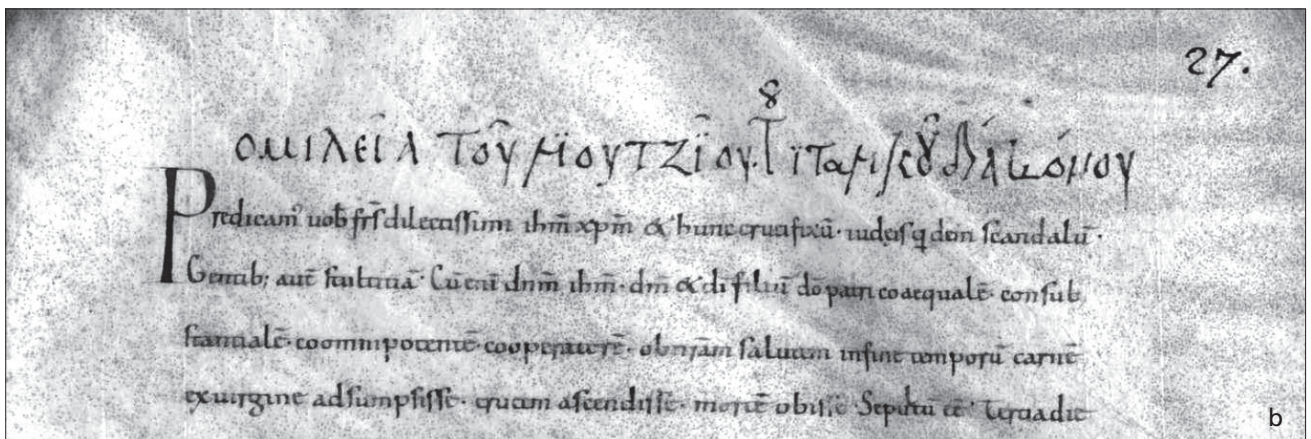 27.
ομιλεία τοῦ
Predicam᾽ uob frs dilectissimi ihm xpm & hunc crucifixū· iudeis qdem scandalū·
Gentib; autē stultitiā· Cū enī dnm ihm· dm & di filiū do patri coaequalē· consub
stantialē· coomnipotentē· cooperatorē· ob nrām salutem in fine temporū carnē
ex uirgine adsumpsisse· crucem ascendisse· mortē obisse Sepultū ee᾽ Tertia die
b